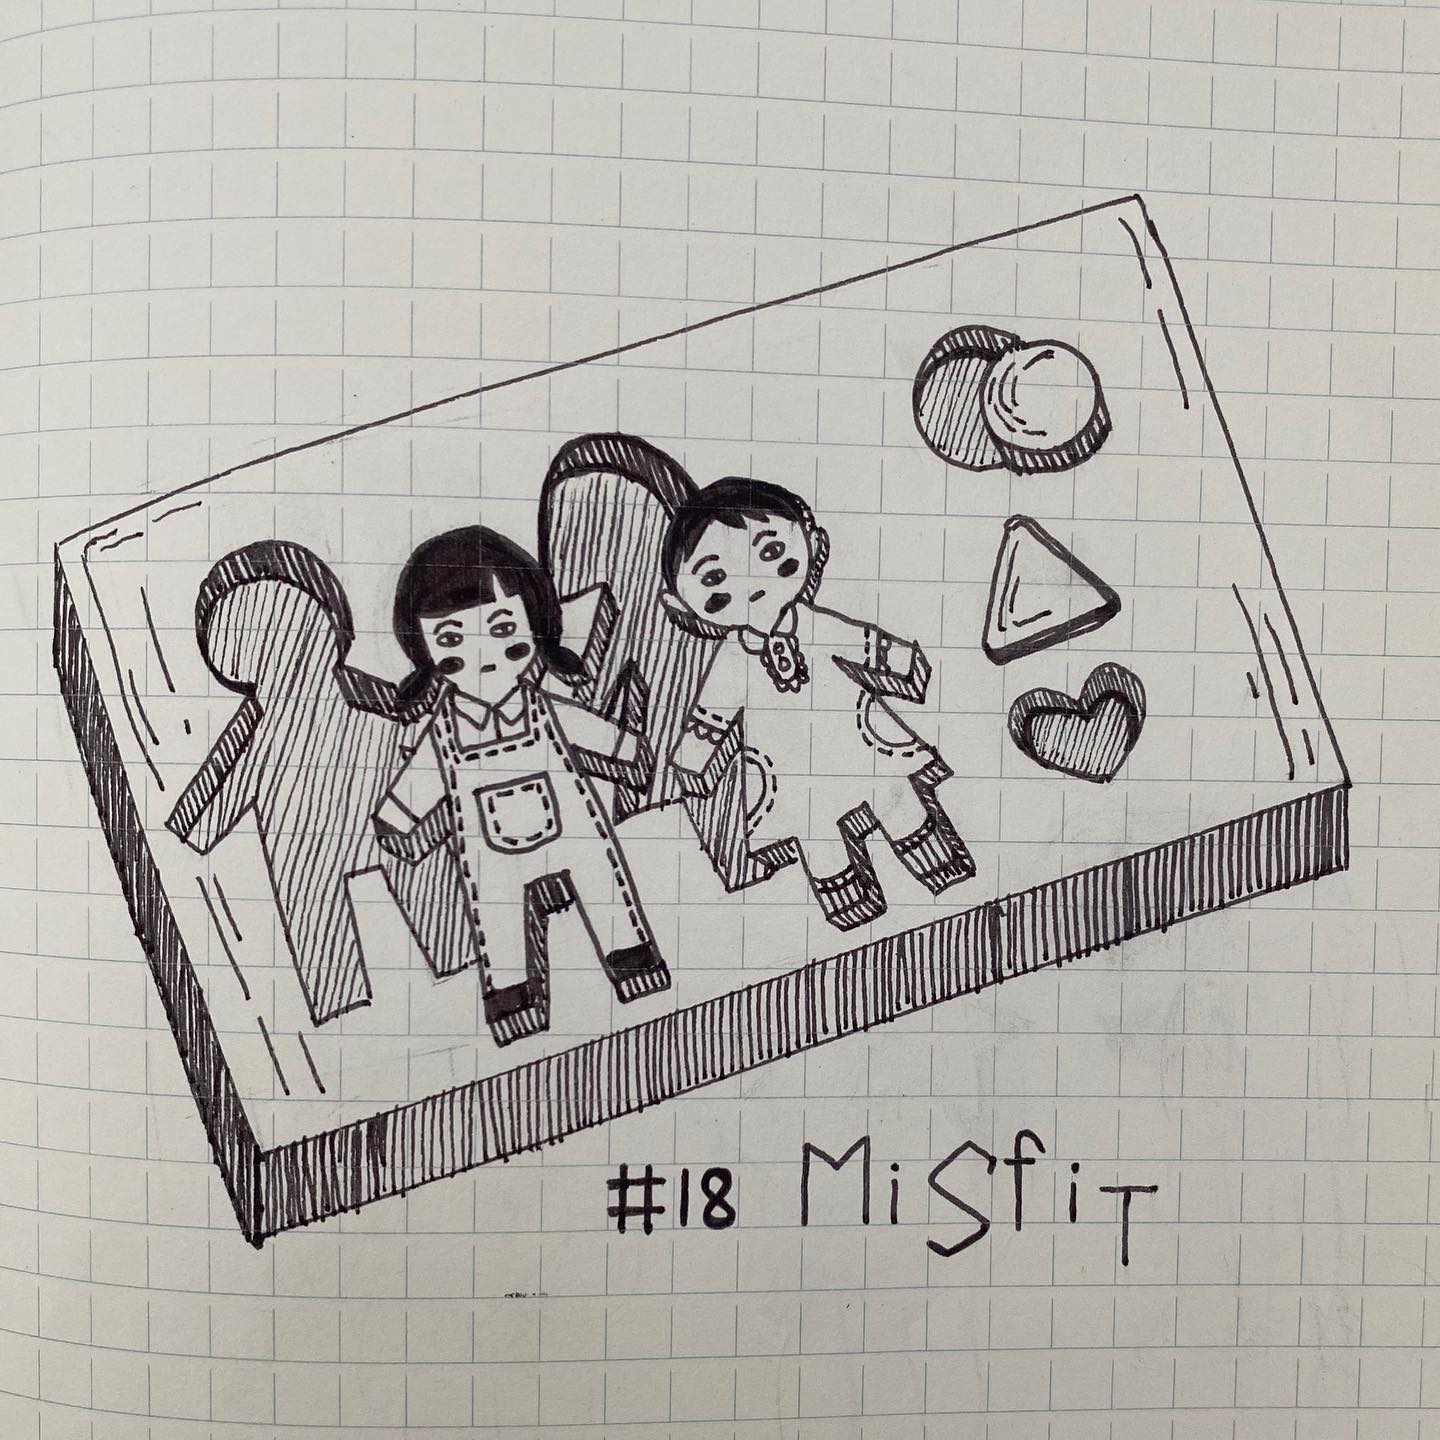 #18 MiSfiT